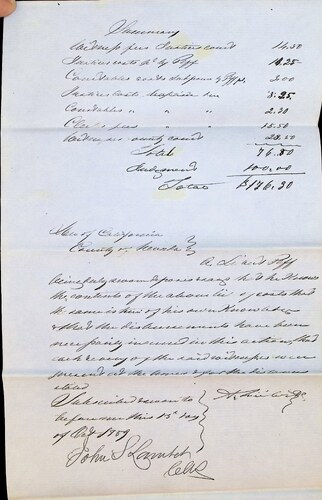 Summary
Witness fees Justices court 14.50
Justices costs by Plff 18.25
Constables costs Subpoena by Plff 2.00
Justices Costs 8.25
Constables " " 2.30
Clerks fees " 15.50
Witness fees county court
Total 76.30
Judgment 100.00
Total $176.30
State of California
County of Nevada
Plff
being duly sworn deposes & says that he knows
the contents of the above bill of costs that
the same is true of his own knowledge
& that the disbursements have been
necessarily incurred in this action, that
each & every of the said witnesses were
present at the time & for the
stated
Subscribed & sworn to
before me this 15th day
of Oct 1859
John S Lambert
Clerk